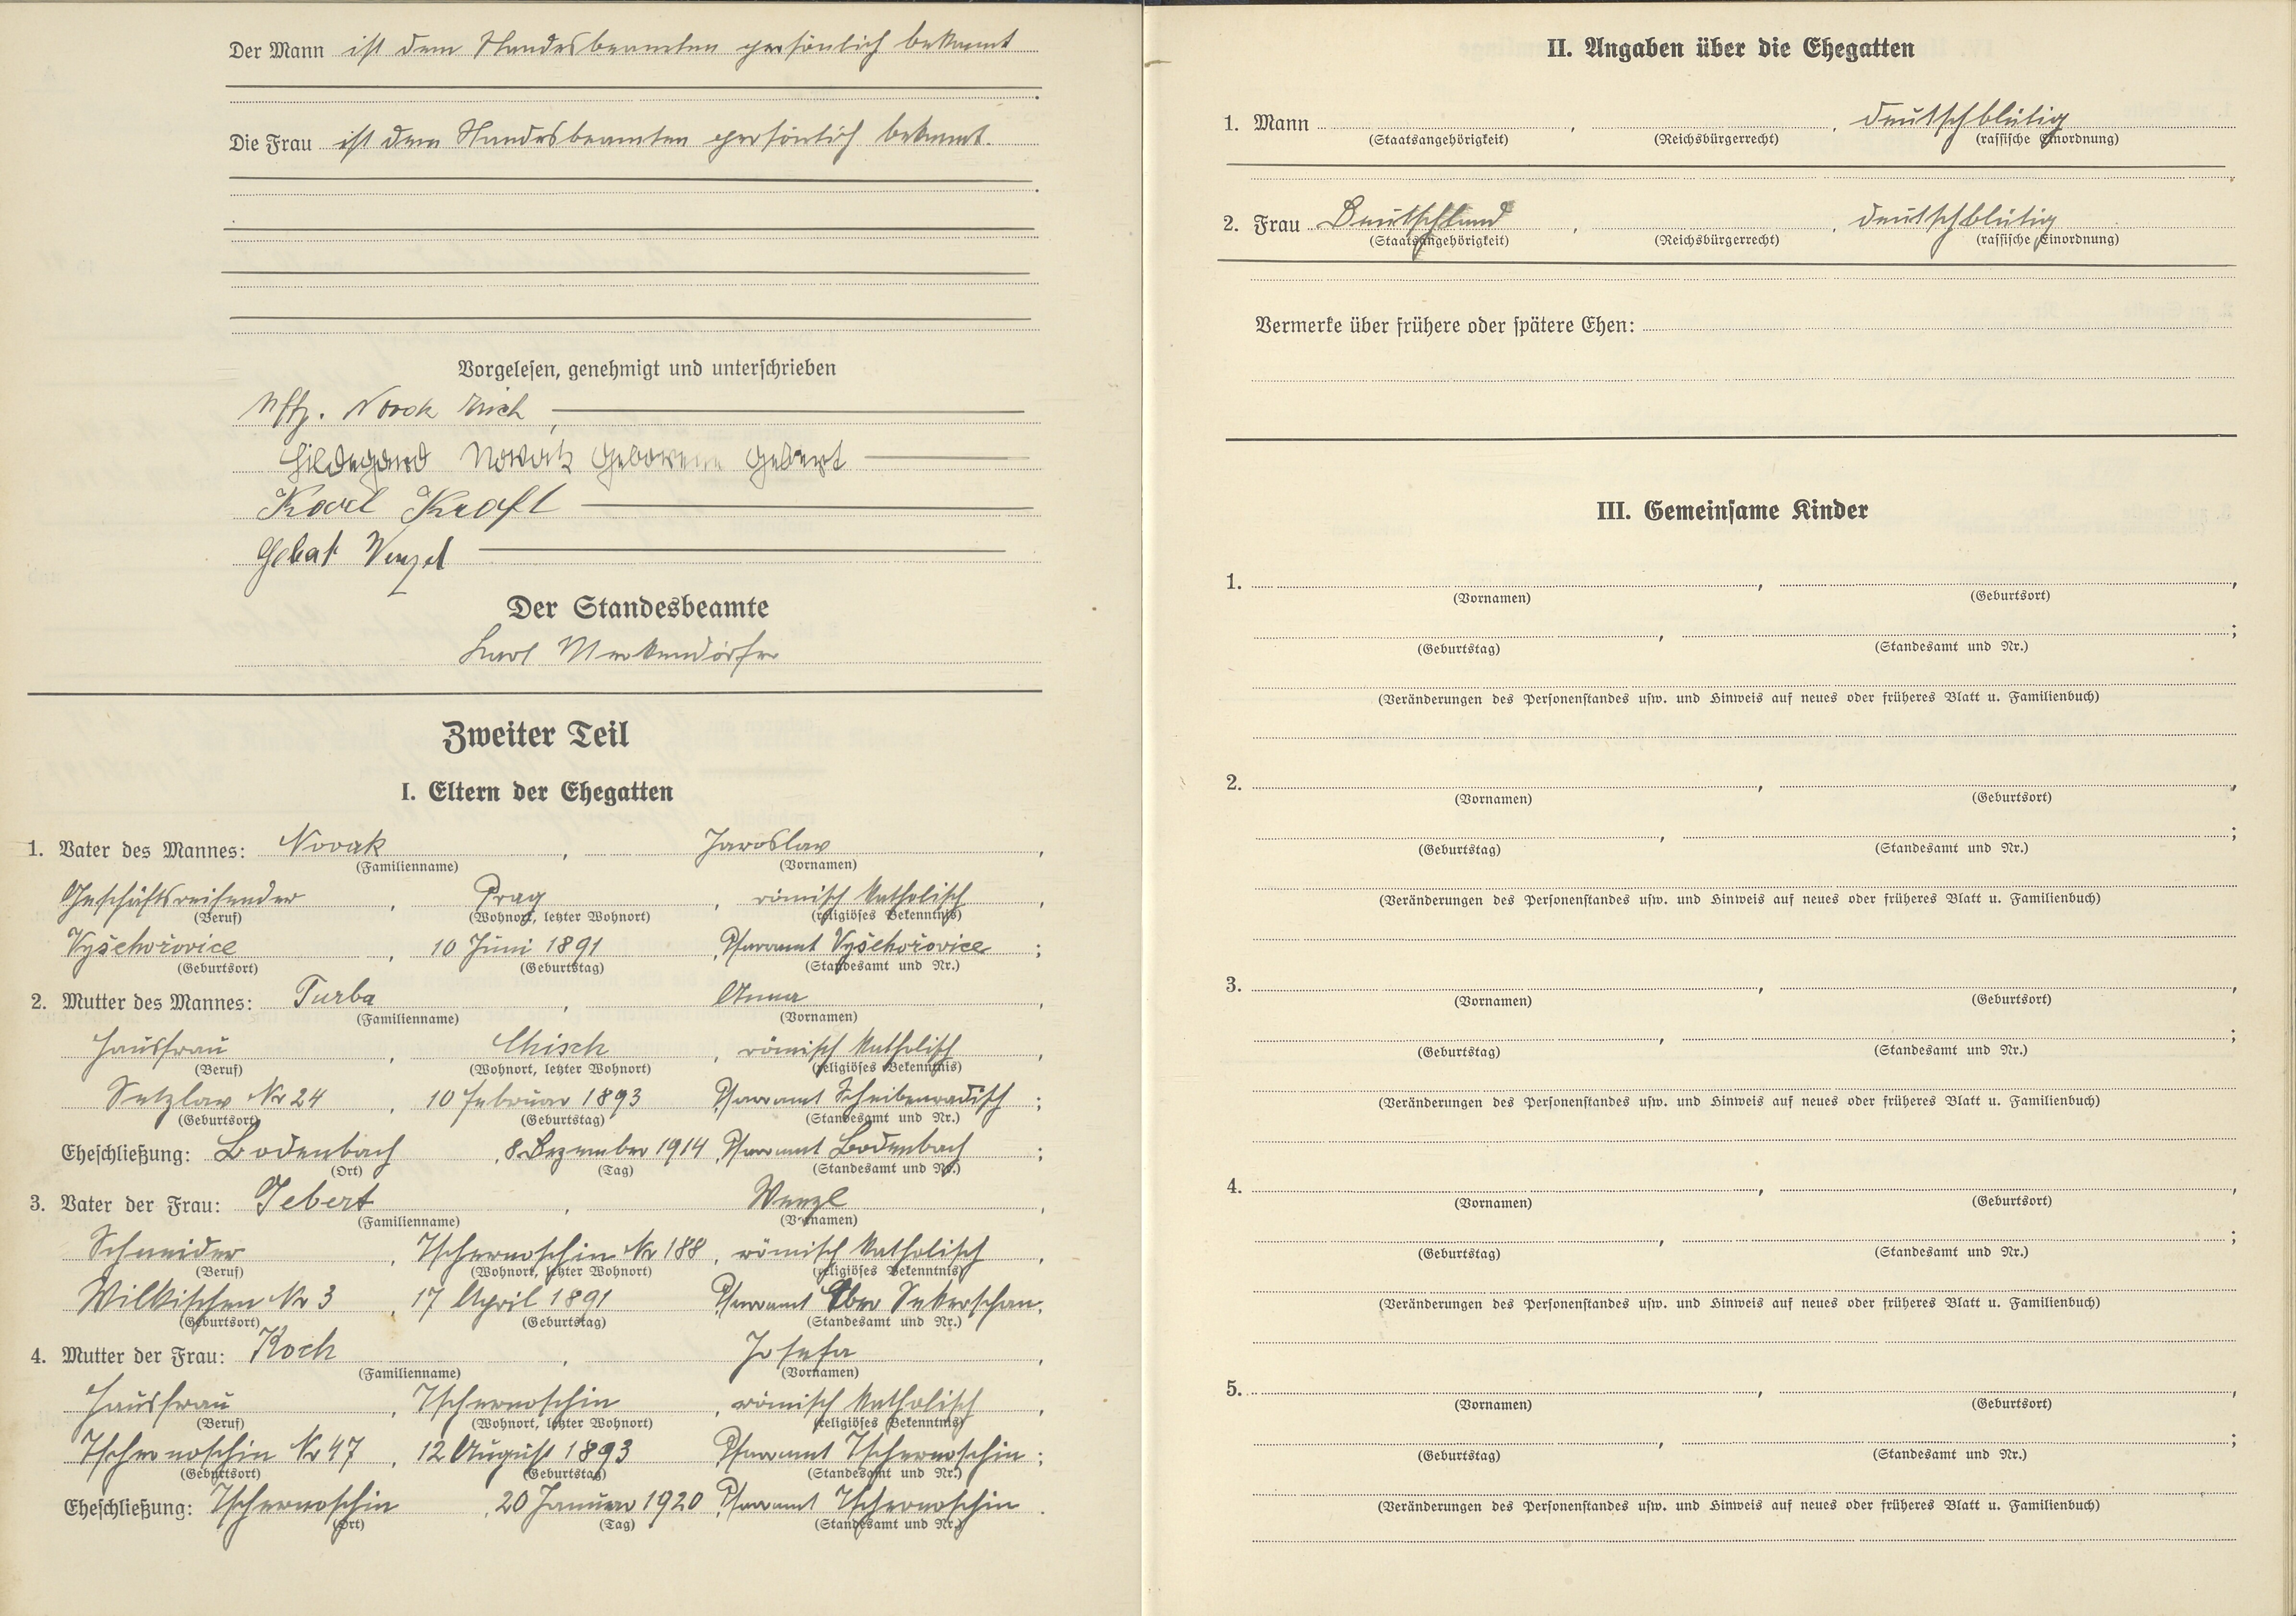 Der Mann ist dem Standesbeamten persönlich bekannt
Die Frau ist dem Standesbeamten persönlich bekannt.
Vorgelesen, genehmigt und unterschrieben
Uffz. Novak Erich
Hildegard Nowak geborene Gebert
Karl Kraft
Gebert Wenzel
Der Standesbeamte
Karl
Zweiter Teil
I. Eltern der Ehegatten
1. Vater des Mannes: Novak, Jaroslav,
(Familienname) (Vornamen)
Geschäftsreisender, Prag, römisch katholisch,
(Beruf) (Wohnort, letzter Wohnort) (religiöses Bekenntnis)
Vyšehořovice, 10 Juni 1891, Pfarramt Vyšehořovice;
(Geburtsort) (Geburtstag) (Standesamt und Nr.)
2. Mutter des Mannes: Turba, Anna,
(Familienname) (Vornamen)
Hausfrau, Chisch, römisch katholisch,
(Beruf) (Wohnort, letzter Wohnort) (religiöses Bekenntnis)
Setzlav Nr 24, 10 Februar 1893, Pfarramt Scheibenradisch;
(Geburtsort) (Geburtstag) (Standesamt und Nr.)
Eheschließung: Bodenbach, 8 Dezember 1914, Pfarramt Bodenbach;
(Ort) (Tag) (Standesamt und Nr.)
3. Vater der Frau: Gebert, Wenzl,
(Familienname) (Vornamen)
Schneider, Tschernoschin Nr 188, römisch katholisch,
(Beruf) (Wohnort, letzter Wohnort) (religiöses Bekenntnis)
Wilkischen Nr 3, 17 April 1891, Pfarramt Ober Sekerschan.
(Geburtsort) (Geburtstag) (Standesamt und Nr.)
4. Mutter der Frau: Koch, Josefa,
(Familienname) (Vornamen)
Hausfrau, Tschernoschin, römisch katholisch,
(Beruf) (Wohnort, letzter Wohnort) (religiöses Bekenntnis)
Tschernoschin Nr 47, 12 August 1893, Pfarramt Tschernoschin;
(Geburtsort) (Geburtstag) (Standesamt und Nr.)
Eheschließung: Tschernoschin, 20 Januar 1920, Pfarramt Tschernoschin.
(Ort) (Tag) (Standesamt und Nr.)
II. Angaben über die Ehegatten
1. Mann , , deutschblütig
(Staatsangehörigkeit) (Reichsbürgerrecht) (rassische Einordnung)
2. Frau Deutschland, , deutschblütig
(Staatsangehörigkeit) (Reichsbürgerrecht) (rassische Einordnung)
Vermerke über frühere oder spätere Ehen:
III. Gemeinsame Kinder
1. , ,
(Vornamen) (Geburtsort)
, ;
(Geburtstag) (Standesamt und Nr.)
(Veränderungen des Personenstandes usw. und Hinweis auf neues oder früheres Blatt u. Familienbuch)
2. , ,
(Vornamen) (Geburtsort)
, ;
(Geburtstag) (Standesamt und Nr.)
(Veränderungen des Personenstandes usw. und Hinweis auf neues oder früheres Blatt u. Familienbuch)
3. , ,
(Vornamen) (Geburtsort)
, ;
(Geburtstag) (Standesamt und Nr.)
(Veränderungen des Personenstandes usw. und Hinweis auf neues oder früheres Blatt u. Familienbuch)
4. , ,
(Vornamen) (Geburtsort)
, ;
(Geburtstag) (Standesamt und Nr.)
(Veränderungen des Personenstandes usw. und Hinweis auf neues oder früheres Blatt u. Familienbuch)
5. , ,
(Vornamen) (Geburtsort)
, ;
(Geburtstag) (Standesamt und Nr.)
(Veränderungen des Personenstandes usw. und Hinweis auf neues oder früheres Blatt u. Familienbuch)